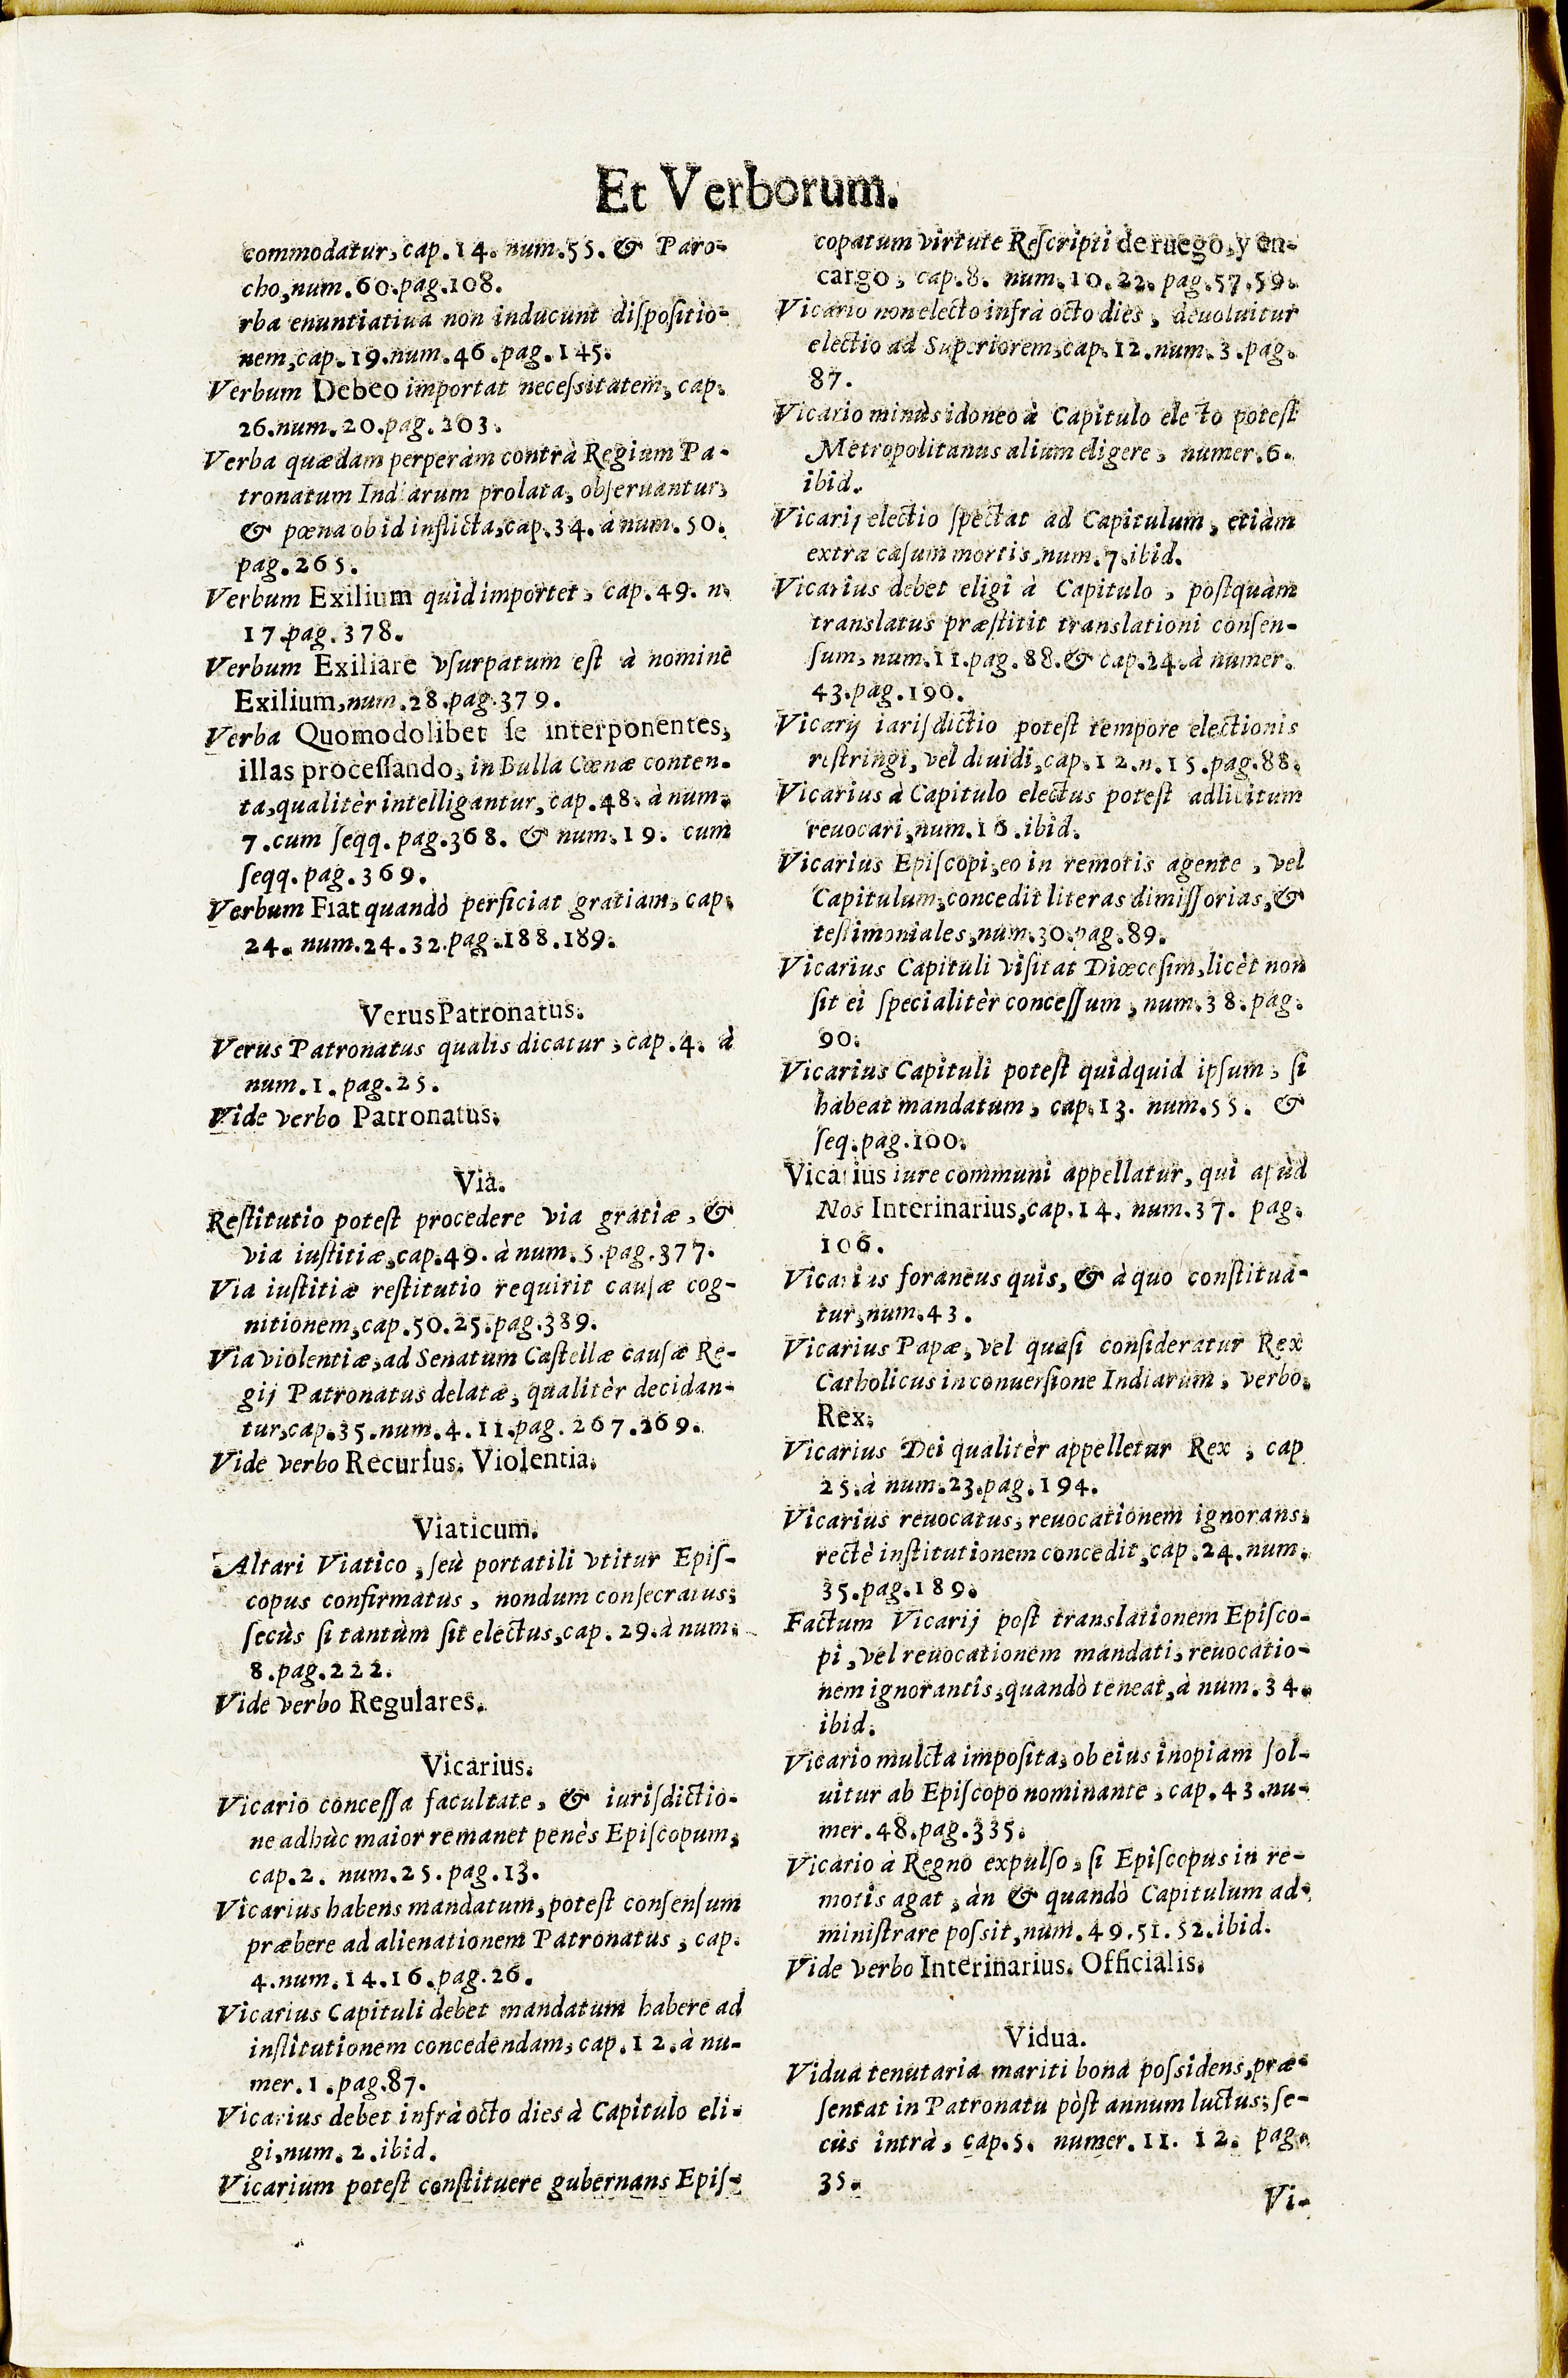 Et Verborum.
commodatur, cap. 14. num. 55. & Paro-
cho, num. 60. pag. 108.
rba enuntiatiua non inducunt diſpoſitio-
nem, cap. 19. num. 46. pag. 145.
Verbum Debeo importat neceſsitatem, cap.
26. num. 20. pag. 203.
Verba quædam perperàm contrà Regium Pa-
tronatum Indiarum prolata, obſeruantur,
& pœna ob id inflicta, cap. 34. à num. 50.
pag. 265.
Verbum Exilium quid importet, cap. 49. n.
17. pag. 378.
Verbum Exiliare vſurpatum eſt à nominè
Exilium, num. 28. pag. 379.
Verba Quomodolibet ſe interponentes,
illas proceſſando, in Bulla Cœnæ conten-
ta, qualitèr intelligantur, cap. 48. à num.
7. cum ſeqq. pag. 368. & num. 19. cum
ſeqq. pag. 369.
Verbum Fiat quandò perficiat gratiam, cap.
24. num. 24. 32. pag. 188. 189.
Verus Patronatus.
Verus Patronatus qualis dicatur, cap. 4. à
num. 1. pag. 25.
Vide verbo Patronatus.
Via.
Reſtitutio poteſt procedere via gratiæ, &
via iuſtitiæ, cap. 49. à num. 5. pag. 377.
Via iuſtitiæ reſtitutio requirit cauſæ cog-
nitionem, cap. 50. 25. pag. 389.
Via violentiæ, ad Senatum Caſtellæ cauſæ Re-
gij Patronatus delatæ, qualitèr decidan-
tur, cap. 35. num. 4. 11. pag. 267. 269.
Vide verbo Recurſus. Violentia.
Viaticum.
Altari Viatico, ſeù portatili vtitur Epiſ-
copus confirmatus, nondum conſecratus;
ſecùs ſi tantùm ſit electus, cap. 29. à num.
8. pag. 222.
Vide verbo Regulares.
Vicarius.
Vicario conceſſa facultate, & iuriſdictio-
ne adhùc maior remanet penès Epiſcopum,
cap. 2. num. 25. pag. 13.
Vicarius habens mandatum, poteſt conſenſum
præbere ad alienationem Patronatus, cap.
4. num. 14. 16. pag. 26.
Vicarius Capituli debet mandatum habere ad
inſtitutionem concedendam, cap. 12. à nu-
mer. 1. pag. 87.
Vicarius debet infrà octo dies à Capitulo eli-
gi, num. 2. ibid.
Vicarium poteſt conſtituere gubernans Epiſ-
copatum virtute Reſcripti de ruego, y en-
cargo, cap. 8. num. 10. 22. pag. 57. 59.
Vicario non electo infrà octo dies, deuoluitur
electio ad Superiorem, cap. 12. num. 3. pag.
87.
Vicario minùs idoneo à Capitulo electo poteſt
Metropolitanus alium eligere, numer. 6.
ibid.
Vicarij electio ſpectat ad Capitulum, etiàm
extra caſum mortis, num. 7. ibid.
Vicarius debet eligi à Capitulo, poſtquàm
translatus præſtitit translationi conſen-
ſum, num. 11. pag. 88. & cap. 24. à numer.
43. pag. 190.
Vicarij iariſdictio poteſt tempore electionis
reſtringi, vel diuidi, cap. 12. n. 15. pag. 88.
Vicarius à Capitulo electus poteſt adlibitum
reuocari, num. 16. ibid.
Vicarius Epiſcopi, eo in remotis agente, vel
Capitulum, concedit literas dimiſſorias, &
teſtimoniales, num. 30. pag. 89.
Vicarius Capituli viſitat Diœceſim, licèt non
ſit ei ſpecialitèr conceſſum, num. 38. pag.
90.
Vicarius Capituli poteſt quidquid ipſum, ſi
habeat mandatum, cap. 13. num. 55. &
ſeq. pag. 100.
Vicarius iure communi appellatur, qui apùd
Nos Interinarius, cap. 14. num. 37. pag.
106.
Vicarius foraneus quis, & à quo conſtitua-
tur, num. 43.
Vicarius Papæ, vel quaſi conſideratur Rex
Catholicus in conuerſione Indiarum, verbo.
Rex.
Vicarius Dei qualitèr appelletur Rex, cap
25. à num. 23. pag. 194.
Vicarius reuocatus, reuocationem ignorans,
rectè inſtitutionem concedit, cap. 24. num.
35. pag. 189.
Factum Vicarij poſt translationem Epiſco-
pi, vel reuocationem mandati, reuocatio-
nem ignorantis, quandò teneat, à num. 34.
ibid.
Vicario mulcta impoſita, ob eius inopiam ſol-
uitur ab Epiſcopo nominante, cap. 43. nu-
mer. 48. pag. 335.
Vicario à Regno expulſo, ſi Epiſcopus in re-
motis agat, àn & quandò Capitulum ad-
miniſtrare poſsit, num. 49. 51. 52. ibid.
Vide verbo Interinarius. Officialis.
Vidua.
Vidua tenutaria mariti bona poſsidens, præ-
ſentat in Patronatu pòſt annum luctus; ſe-
cùs intrà, cap. 5. numer. 11. 12. pag.
35.
Vi-